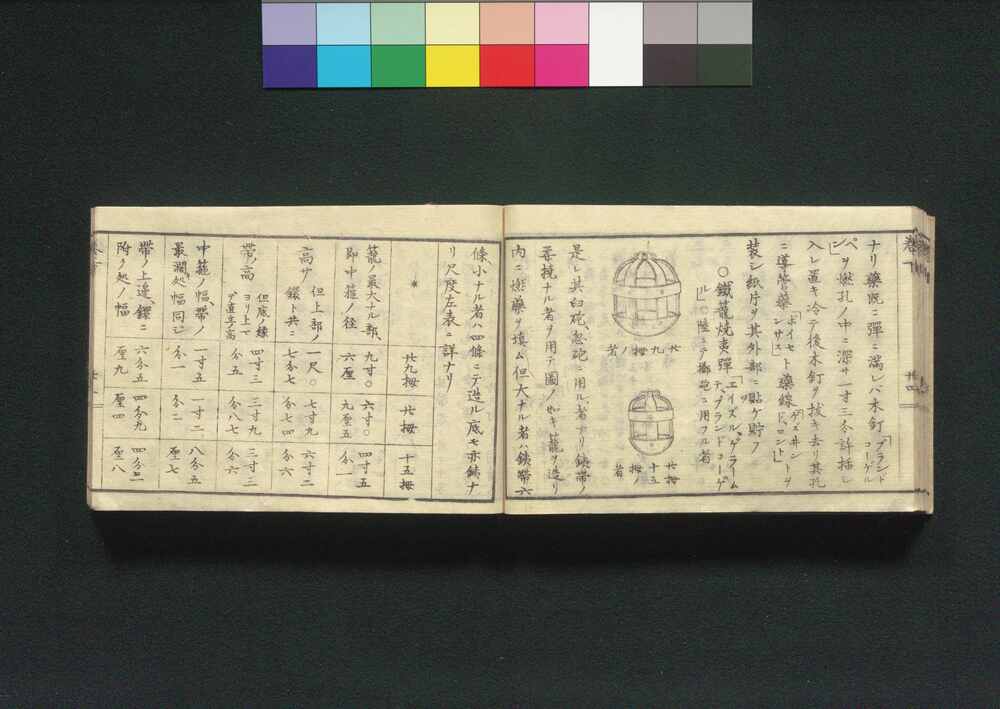 ナリ藥既ニ彈ニ滿レバ木釘「ブランドコーゲル
ペン」ヲ燃孔ノ中ニ深サ一寸三分許揷シ
入レ置キ冷テ後木釘ヲ拔キ去リ其孔
ニ導管藥
藥線
トヲ
裝シ紙片ヲ其外部ニ貼ケ貯フ
○鐵籠燒夷彈
ブランドコーゲ
ル」○陸ニテ
砲ニ用フル者
廿九拇ノ者
廿拇
十五拇ノ
者
是レ其臼砲忽砲ニ用ル者ナリ鐵帶ノ
ナル者ヲ用テ圖ノ如キ籠ヲ造リ
内ニ燃藥ヲ填ム但大ナル者ハ鐵帶六
條小ナル者ハ四條ニテ造ル底モ亦鐵ナ
リ尺度左表ニ詳ナリ
* 廿九拇 廿拇 十五拇
籠ノ最大ナル部、即中箍ノ径 九寸○六厘 六寸○九厘五 四寸五分一
高サ 但上部ノ鐶ト共ニ 一尺○七分七 七寸九分七四 六寸二分六
帶ノ高 但底ノ緣ヨリ上マデ直立ノ高 四寸三分五 三寸九分八七 三寸三分六
中箍ノ幅、帶ノ最濶處幅同ジ 一寸五分一 一寸二分二 八分五厘七
帶ノ上邊、鐶ニ附ク処ノ幅 六分五厘九 四分九厘四 四分一厘八